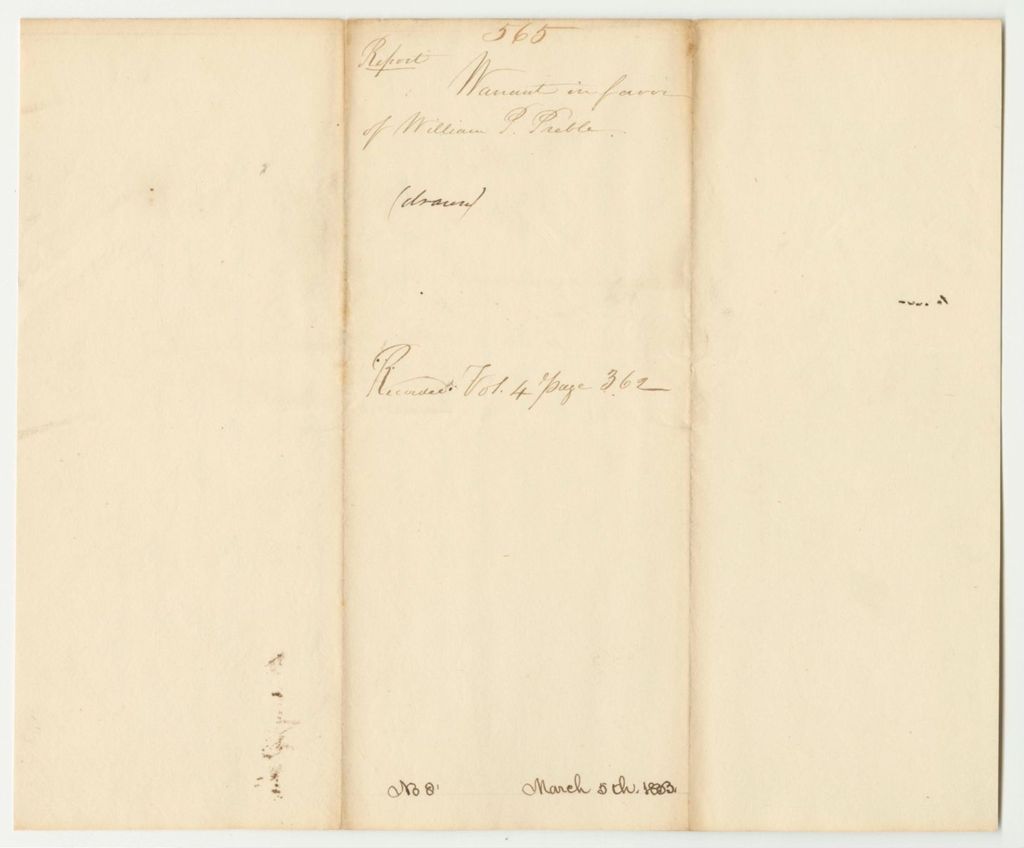 565
Report
Warrant in favor
of William P. Preble.
(drawn)
Recorded Vol. 4 page 362
No 8 March 5th. 1833.